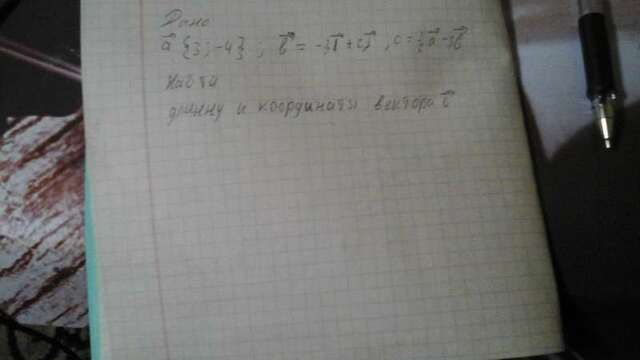 Дано
a⃗ {3; -4} ; b⃗ = -3i⃗ +
Найти
длинну и координаты вектора c⃗